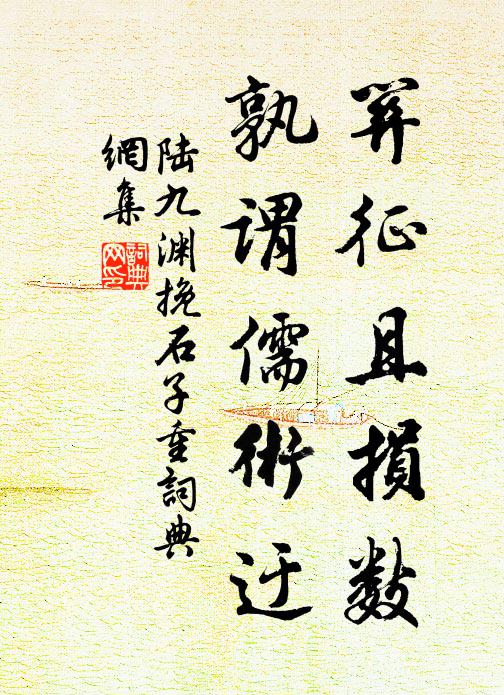 筭征且損數
孰謂儒術迂
陸九渊挽石子重詞典
網集
詞典網印